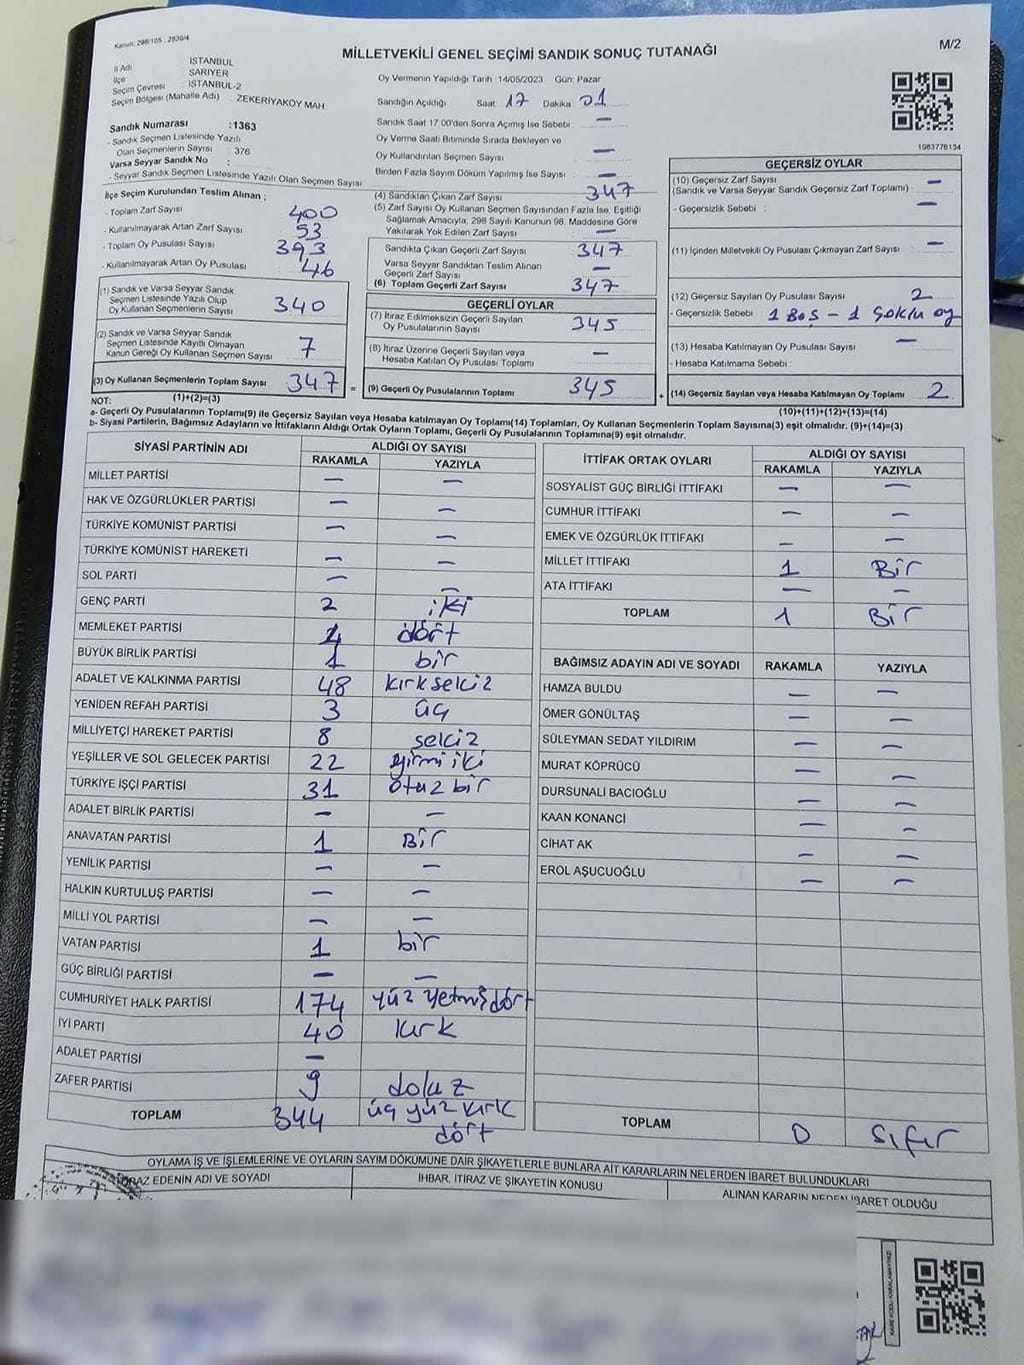 Kanun: 298/105 , 2839/4
M/2
MİLLETVEKİLİ GENEL SEÇİMİ SANDIK SONUÇ TUTANAĞI
İl Adı İSTANBUL
İlçe SARIYER
Seçim Çevresi İSTANBUL-2
Seçim Bölgesi (Mahalle Adı) : ZEKERİYAKÖY MAH
Oy Vermenin Yapıldığı Tarih 14/05/2023 Gün: Pazar
Sandığın Açıldığı Saat: 17 Dakika: 01
Sandık Saat 17:00'den Sonra Açılmış İse Sebebi : —
Oy Verme Saati Bitiminde Sırada Bekleyen ve
Oy Kullandırılan Seçmen Sayısı —
Birden Fazla Sayım Döküm Yapılmış İse Sayısı : —
1083776134
Sandık Numarası :1363
- Sandık Seçmen Listesinde Yazılı
Olan Seçmenlerin Sayısı : 376
Varsa Seyyar Sandık No :
- Seyyar Sandık Seçmen Listesinde Yazılı Olan Seçmen Sayısı
İlçe Seçim Kurulundan Teslim Alınan ;
- Toplam Zarf Sayısı 400
- Kullanılmayarak Artan Zarf Sayısı 53
- Toplam Oy Pusulası Sayısı 393
- Kullanılmayarak Artan Oy Pusulası 46
(1) Sandık ve Varsa Seyyar Sandık
Seçmen Listesinde Yazılı Olup
Oy Kullanan Seçmenlerin Sayısı 340
(2) Sandık ve Varsa Seyyar Sandık
Seçmen Listesinde Kayıtlı Olmayan
Kanun Gereği Oy Kullanan Seçmen Sayısı 7
(3) Oy Kullanan Seçmenlerin Toplam Sayısı 347 =
(1)+(2)=(3)
(4) Sandıktan Çıkan Zarf Sayısı 347
(5) Zarf Sayısı Oy Kullanan Seçmen Sayısından Fazla İse, Eşitliği
Sağlamak Amacıyla, 298 Sayılı Kanunun 98. Maddesine Göre
Yakılarak Yok Edilen Zarf Sayısı —
Sandıkta Çıkan Geçerli Zarf Sayısı 347
Varsa Seyyar Sandıktan Teslim Alınan
Geçerli Zarf Sayısı —
(6) Toplam Geçerli Zarf Sayısı 347
GEÇERLİ OYLAR
(7) İtiraz Edilmeksizin Geçerli Sayılan
Oy Pusulalarının Sayısı 345
(8) İtiraz Üzerine Geçerli Sayılan veya
Hesaba Katılan Oy Pusulası Toplamı —
(9) Geçerli Oy Pusulalarının Toplamı 345 +
GEÇERSİZ OYLAR
(10) Geçersiz Zarf Sayısı —
(Sandık ve Varsa Seyyar Sandık Geçersiz Zarf Toplamı)
- Geçersizlik Sebebi : —
(11) İçinden Milletvekili Oy Pusulası Çıkmayan Zarf Sayısı —
(12) Geçersiz Sayılan Oy Pusulası Sayısı 2
- Geçersizlik Sebebi 1 Boş - 1 Çoklu oy
(13) Hesaba Katılmayan Oy Pusulası Sayısı —
- Hesaba Katılmama Sebebi :
(14) Geçersiz Sayılan veya Hesaba Katılmayan Oy Toplamı 2
(10)+(11)+(12)+(13)=(14)
NOT:
a- Geçerli Oy Pusulalarının Toplamı(9) ile Geçersiz Sayılan veya Hesaba katılmayan Oy Toplamı(14) Toplamları, Oy Kullanan Seçmenlerin Toplam Sayısına(3) eşit olmalıdır. (9)+(14)=(3)
b- Siyasi Partilerin, Bağımsız Adayların ve İttifakların Aldığı Ortak Oyların Toplamı, Geçerli Oy Pusulalarının Toplamına(9) eşit olmalıdır.
SİYASİ PARTİNİN ADI ALDIĞI OY SAYISI
RAKAMLA YAZIYLA
MİLLET PARTİSİ — —
HAK VE ÖZGÜRLÜKLER PARTİSİ — —
TÜRKİYE KOMÜNİST PARTİSİ — —
TÜRKİYE KOMÜNİST HAREKETİ — —
SOL PARTİ — —
GENÇ PARTİ 2 iki
MEMLEKET PARTİSİ 4 dört
BÜYÜK BİRLİK PARTİSİ 1 bir
ADALET VE KALKINMA PARTİSİ 48 kırk sekiz
YENİDEN REFAH PARTİSİ 3 üç
MİLLİYETÇİ HAREKET PARTİSİ 8 sekiz
YEŞİLLER VE SOL GELECEK PARTİSİ 22 yirmi iki
TÜRKİYE İŞÇİ PARTİSİ 31 otuz bir
ADALET BİRLİK PARTİSİ — —
ANAVATAN PARTİSİ 1 Bir
YENİLİK PARTİSİ — —
HALKIN KURTULUŞ PARTİSİ — —
MİLLİ YOL PARTİSİ — —
VATAN PARTİSİ 1 bir
GÜÇ BİRLİĞİ PARTİSİ — —
CUMHURİYET HALK PARTİSİ 174 yüz yetmiş dört
İYİ PARTİ 40 kırk
ADALET PARTİSİ —
ZAFER PARTİSİ 9 dokuz
TOPLAM 344 üç yüz kırk
dört
İTTİFAK ORTAK OYLARI ALDIĞI OY SAYISI
RAKAMLA YAZIYLA
SOSYALİST GÜÇ BİRLİĞİ İTTİFAKI — —
CUMHUR İTTİFAKI — —
EMEK VE ÖZGÜRLÜK İTTİFAKI — —
MİLLET İTTİFAKI 1 Bir
ATA İTTİFAKI — —
TOPLAM 1 Bir
BAĞIMSIZ ADAYIN ADI VE SOYADI RAKAMLA YAZIYLA
HAMZA BULDU — —
ÖMER GÖNÜLTAŞ — —
SÜLEYMAN SEDAT YILDIRIM — —
MURAT KÖPRÜCÜ — —
DURSUNALİ BACIOĞLU — —
KAAN KONANCİ — —
CİHAT AK — —
EROL AŞUCUOĞLU — —
TOPLAM 0 sıfır
OYLAMA İŞ VE İŞLEMLERİNE VE OYLARIN SAYIM DÖKÜMÜNE DAİR ŞİKAYETLERLE BUNLARA AİT KARARLARIN NELERDEN İBARET BULUNDUKLARI
İTİRAZ EDENİN ADI VE SOYADI İHBAR, İTİRAZ VE ŞİKAYETİN KONUSU ALINAN KARARIN NEDEN İBARET OLDUĞU
KARE KODU KARALAMAYINIZ!